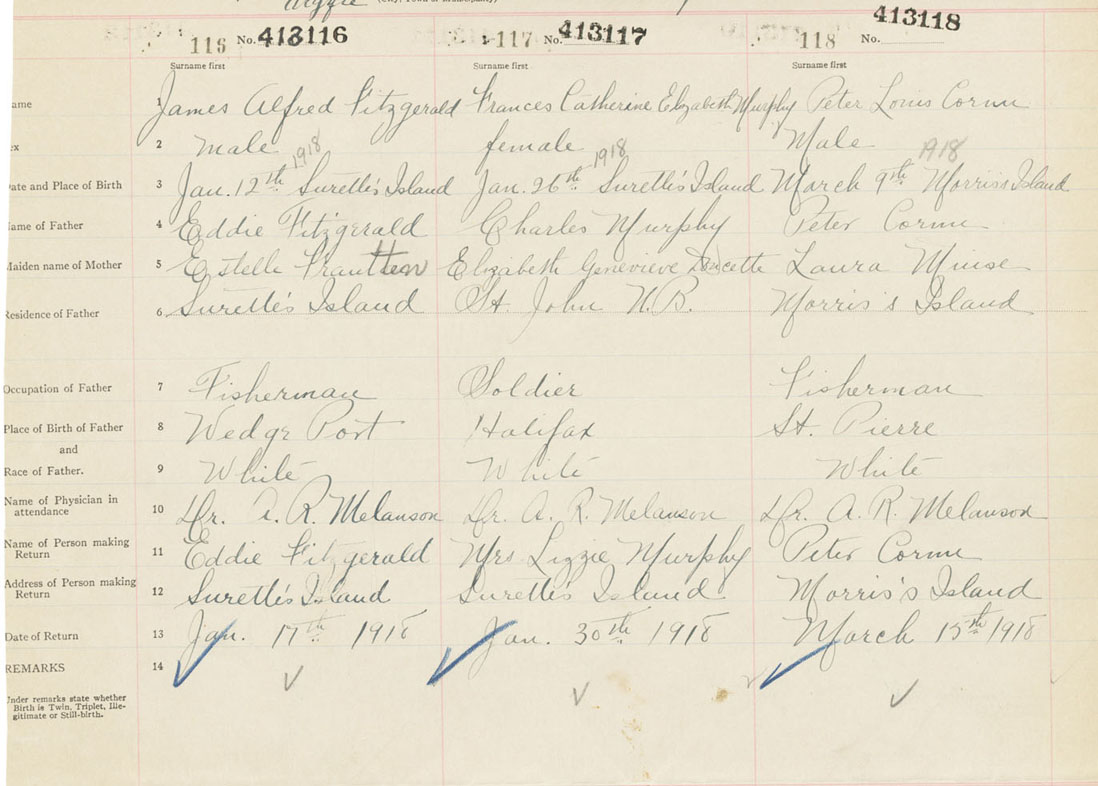 Argyle (City, Town or Municipality)
116 No. 413116 117 No. 413117 118 No. 413118
Surname first Surname first Surname first
ame 1 James Alfred Fitzgerald Frances Catherine Elizabeth Murphy Peter Louis Cormu
ex 2 male female Male
1918 1918 1918
Date and Place of Birth 3 Jan. 12th Surette's Island Jan. 26th Surette's Island March 9th Morris's Island
Name of Father 4 Eddie Fitzgerald Charles Murphy Peter Cormu
Maiden name of Mother 5 Estelle Elizabeth Genevieve Doucette Laura Muise
Residence of Father 6 Surette's Island St. John N.B. Morris's Island
Occupation of Father 7 Fisherman Soldier Fisherman
Place of Birth of Father 8 Wedge Port Halifax St. Pierre
and
Race of Father. 9 White White White
Name of Physician in
attendance 10 Dr. A. R. Melanson Dr. A. R. Melanson Dr. A. R. Melanson
Name of Person making
Return 11 Eddie Fitzgerald Mrs Lizzie Murphy Peter Cormu
Address of Person making
Return 12 Surette's Island Surette's Island Morris's Island
Date of Return 13 Jan. 17th 1918 Jan. 30th 1918 March 15th 1918
REMARKS 14
Under remarks state whether
Birth is Twin, Triplet, Ille-
gitimate or Still-birth.